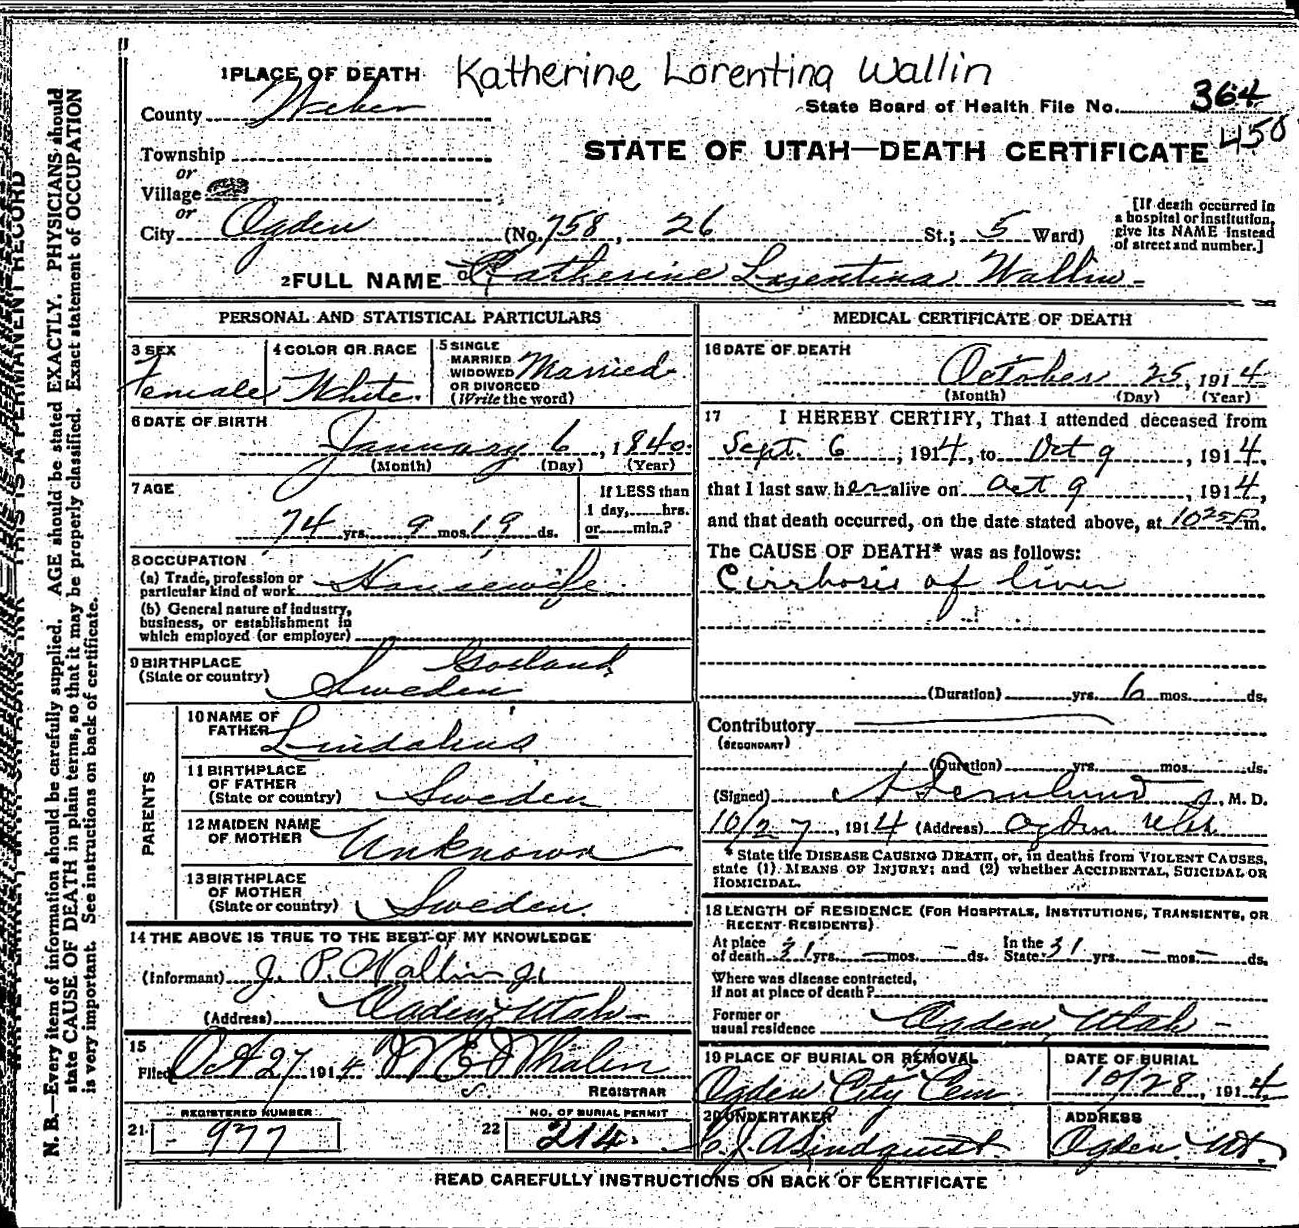 1 PLACE OF DEATH Katherine Lorentina Wallin
County Weber
State Board of Health File No. 364
450
STATE OF UTAH—DEATH CERTIFICATE
Township
or
Village
or
City Ogden (No. 758, 26 St.; 5 Ward)
[If death occurred in
a hospital or institution,
give its NAME instead
of street and number.]
2 FULL NAME Catherine Lorentina Wallin
PERSONAL AND STATISTICAL PARTICULARS
3 SEX
Female
4 COLOR OR RACE
White.
5 SINGLE
MARRIED
WIDOWED
OR DIVORCED
(Write the word)
Married
6 DATE OF BIRTH
January 6, 1840.
(Month) (Day) (Year)
7 AGE
74 yrs. 9 mos. 19 ds.
If LESS than
1 day, hrs.
or min.?
8 OCCUPATION
(a) Trade, profession or
particular kind of work Housewife
(b) General nature of industry,
business, or establishment in
which employed (or employer)
9 BIRTHPLACE
(State or country)
Sweden
PARENTS
10 NAME OF
FATHER
11 BIRTHPLACE
OF FATHER
(State or country) Sweden
12 MAIDEN NAME
OF MOTHER Unknown
13 BIRTHPLACE
OF MOTHER
(State or country) Sweden.
14 THE ABOVE IS TRUE TO THE BEST OF MY KNOWLEDGE
(Informant) J. P. Wallin Jr
(Address) Ogden Utah
15
Filed Oct 27 1914 Whalen
REGISTRAR
21 REGISTERED NUMBER
977
22 NO. OF BURIAL PERMIT
214.
MEDICAL CERTIFICATE OF DEATH
16 DATE OF DEATH
October 25, 1914
(Month) (Day) (Year)
17 I HEREBY CERTIFY, That I attended deceased from
Sept. 6, 1914, to Oct 9, 1914,
that I last saw her alive on Oct 9, 1914,
and that death occurred, on the date stated above, at 10 25 P m.
The CAUSE OF DEATH* was as follows:
Cirrhosis of liver
(Duration) yrs. 6 mos. ds.
Contributory
(SECONDARY)
(Duration) yrs. mos. ds.
(Signed) M. D.
10/27, 1914 (Address) Ogden Utah
* State the DISEASE CAUSING DEATH, or, in deaths from VIOLENT CAUSES,
state (1) MEANS OF INJURY; and (2) whether ACCIDENTAL, SUICIDAL OR
HOMICIDAL.
18 LENGTH OF RESIDENCE (FOR HOSPITALS, INSTITUTIONS, TRANSIENTS, OR
RECENT RESIDENTS)
At place
of death 31 yrs. — mos. — ds. In the
State 31 yrs. — mos. — ds.
Where was disease contracted,
if not at place of death?
Former or
usual residence Ogden Utah
19 PLACE OF BURIAL OR REMOVAL
Ogden City Cem.
DATE OF BURIAL
10/28, 1914
20 UNDERTAKER
Lindquist
ADDRESS
Ogden Ut.
READ CAREFULLY INSTRUCTIONS ON BACK OF CERTIFICATE
N. B.—Every item of information should be carefully supplied. AGE should be stated EXACTLY. PHYSICIANS should
state CAUSE OF DEATH in plain terms, so that it may be properly classified. Exact statement of OCCUPATION
is very important. See instructions on back of certificate.
THIS IS A PERMANENT RECORD